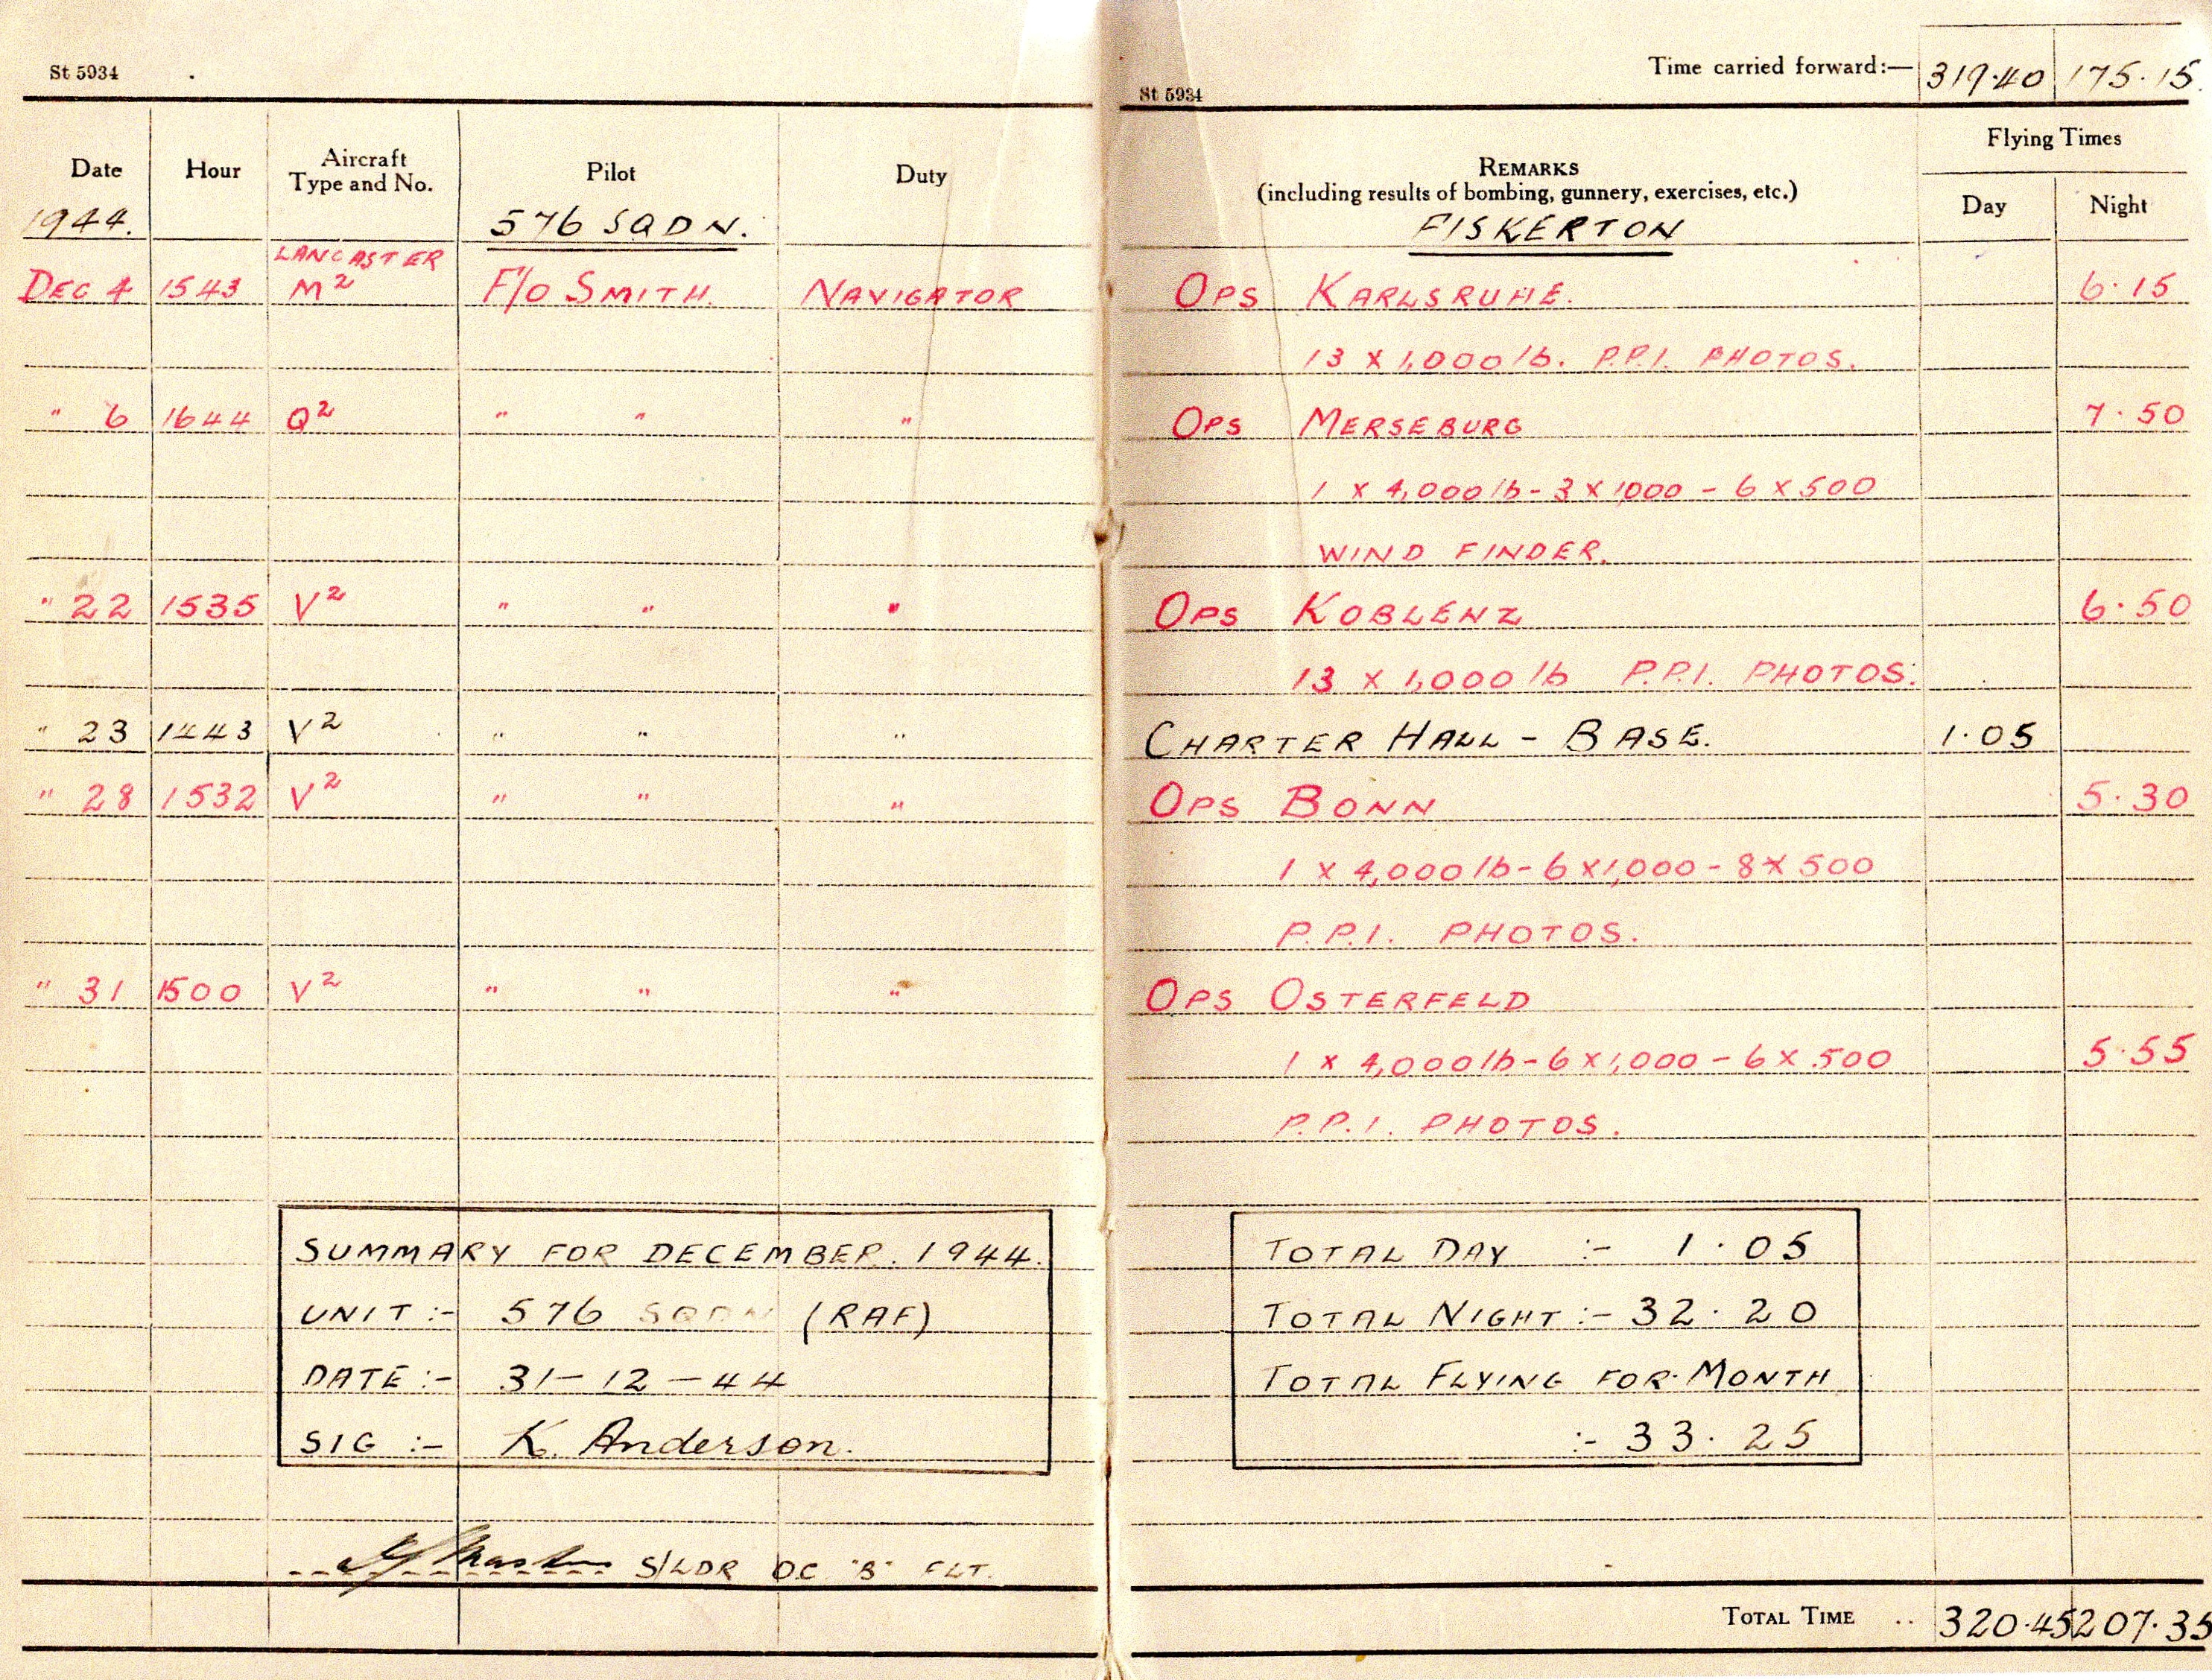 St 5934
Date Hour Aircraft Type and No. Pilot Duty
1944. 576 SQDN.
LANCASTER
DEC 4 1543 M2 F/O SMITH. NAVIGATOR
" 6 1644 Q2 " " "
" 22 1535 V2 " " "
" 23 1443 V2 " " "
" 28 1532 V2 " " "
" 31 1500 V2 " " "
SUMMARY FOR DECEMBER. 1944.
UNIT :- 576 SQDN (RAF)
DATE :- 31-12-44
SIG :- K. Anderson.
S/LDR O.C. "B" FLT.
Time carried forward:— 319.40 175.15
St 5934
REMARKS
(including results of bombing, gunnery, exercises, etc.)
Flying Times
Day Night
FISKERTON
OPS KARLSRUHE. 6.15
13 x 1,000 lb. P.P.I. PHOTOS.
OPS MERSEBURG 7.50
1 x 4,000 lb - 3 x 1000 - 6 x 500
WIND FINDER.
OPS KOBLENZ 6.50
13 x 1,000 lb P.P.I. PHOTOS.
CHARTER HALL - BASE. 1.05
OPS BONN 5.30
1 x 4,000 lb - 6 x 1,000 - 8 x 500
P.P.I. PHOTOS.
OPS OSTERFELD
1 x 4,000 lb - 6 x 1,000 - 6 x 500 5.55
P.P.I. PHOTOS.
TOTAL DAY :- 1.05
TOTAL NIGHT :- 32.20
TOTAL FLYING FOR MONTH
:- 33.25
TOTAL TIME .. 320.45 207.35